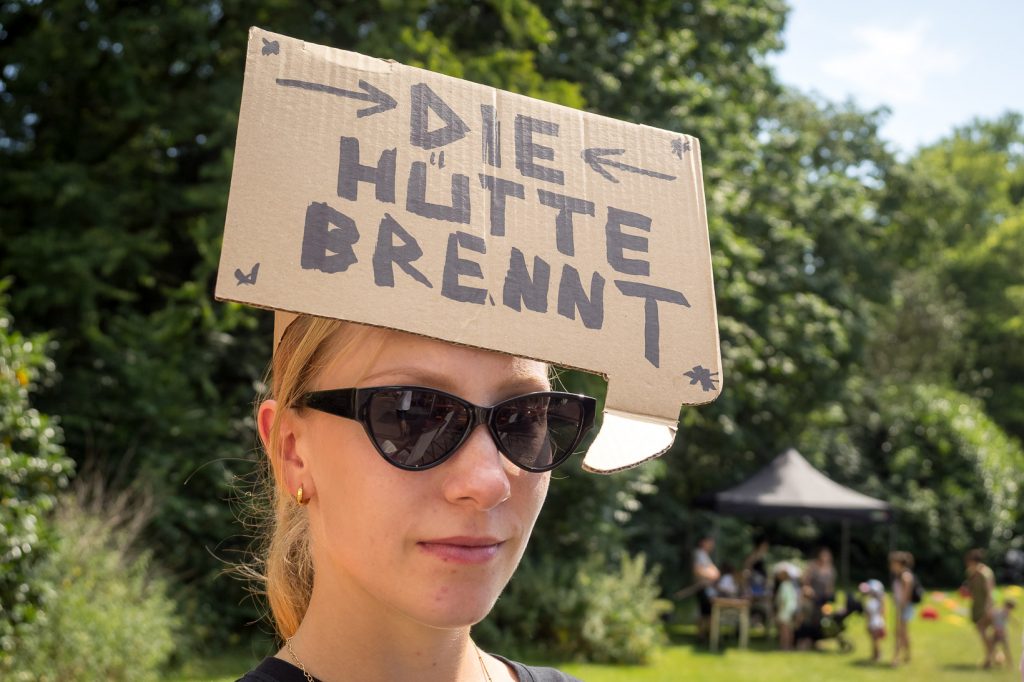 DIE
HÜTTE
BRENNT